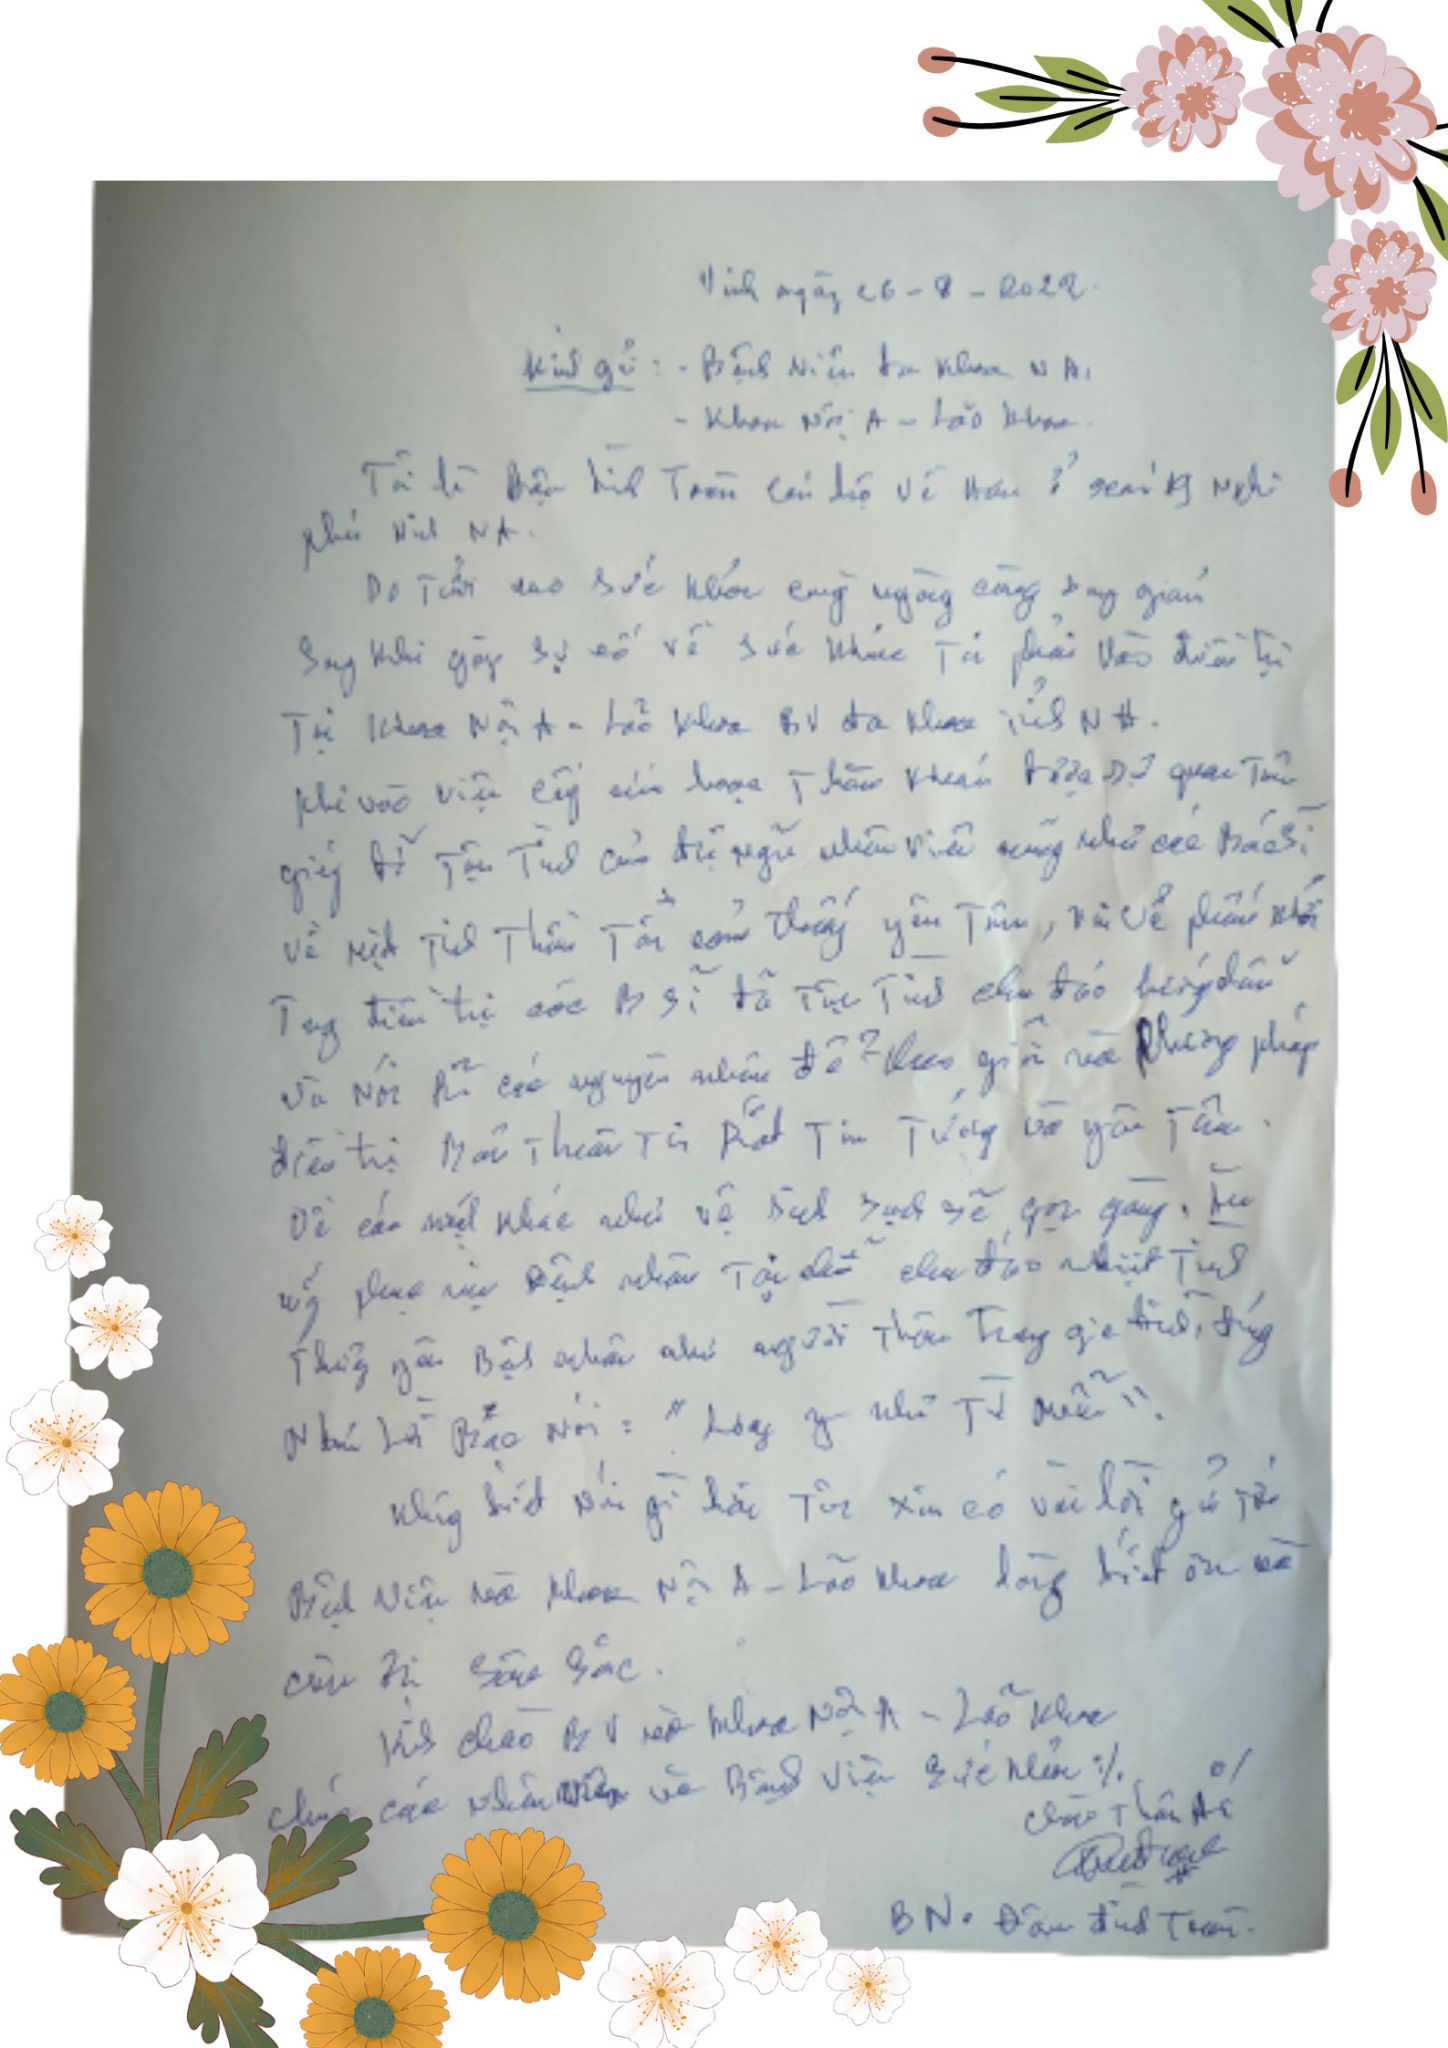 Vinh ngày 26-8-2022.
Kính gửi: - Bệnh viện đa khoa NA.
- Khoa Nội A - Lão khoa.
Tôi là Đình Toàn căn hộ Nghi
phú Vinh NA.
Do tuổi cao sức khỏe cũng ngày càng suy giảm
Sau khi gặp sự cố về sức khỏe Tôi phải vào điều trị
Tại khoa Nội A - Lão khoa BV đa khoa tỉnh NA.
Khi vào viện thăm khám được sự quan tâm
giúp đỡ Tận Tình của đội ngũ nhân viên cũng như các Bác sĩ
về mặt Tinh Thần Tôi cảm thấy yên Tâm, về
điều trị các B sĩ đã Tận Tình chu đáo hướng dẫn
và nói rõ các nguyên nhân để theo giõi và phương pháp
điều trị Bản Thân Tôi Rất Tin Tưởng và yên Tâm.
Về các mặt khác như vệ sinh sạch sẽ gọn gàng.
phục vụ Bệnh nhân Tại chỗ chu đáo nhiệt Tình
Thương yêu Bệnh nhân như người Thân Trong gia đình, đúng
Như Lời Bác Nói: "Lương y như Từ Mẫu".
Không biết nói gì hơn Tôi xin có vài lời gửi tới
Bệnh viện và khoa Nội A - Lão khoa lòng biết ơn và
sâu sắc.
Kính chào BV và khoa Nội A - Lão khoa
chúc các nhân viên và Bệnh viện sức khỏe
Chào Thân Ái
BN. Đình Toàn.